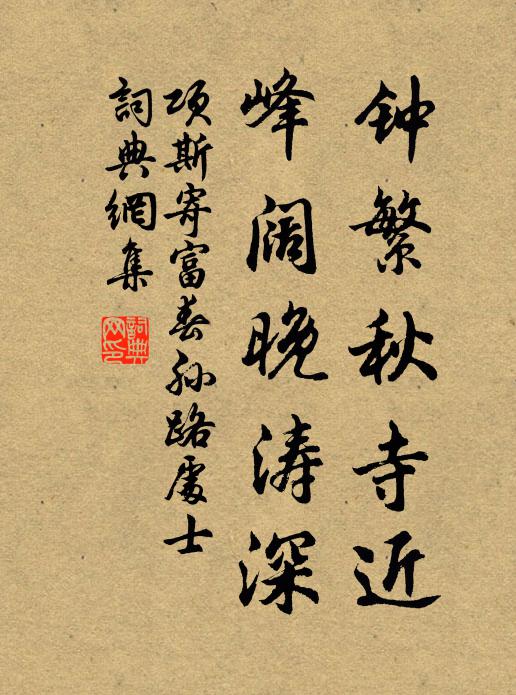 钟繁秋寺近
峰阔晚涛深
项斯寄富春孙路處士
詞典網集
詞典网印